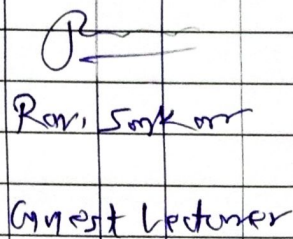 Ravi Sonkar
Guest Lecturer